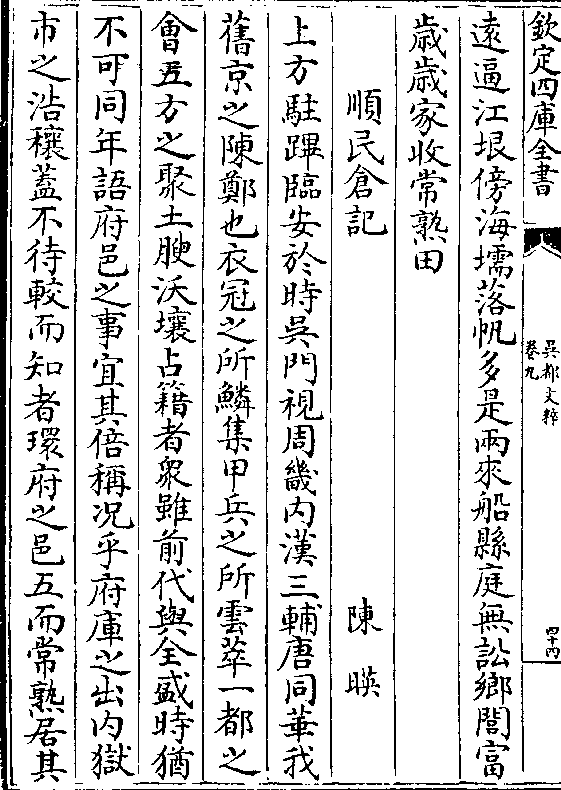 欽定四庫全書
吳都文粹
卷九
四十四
遠逼江垠傍海壖落帆多是兩來船縣庭無訟鄉閭富
歲歲家收常熟田
順民倉記 陳暎
上方駐蹕臨安於時吳門視周畿内漢三輔唐同華我
舊京之陳鄭也衣冠之所鱗集甲兵之所雲萃一都之
會五方之聚土腴沃壤占籍者衆雖前代與全盛時猶
不可同年語府邑之事宜其倍稱况乎府庫之出内獄
市之浩穰蓋不待較而知者環府之邑五而常熟居其